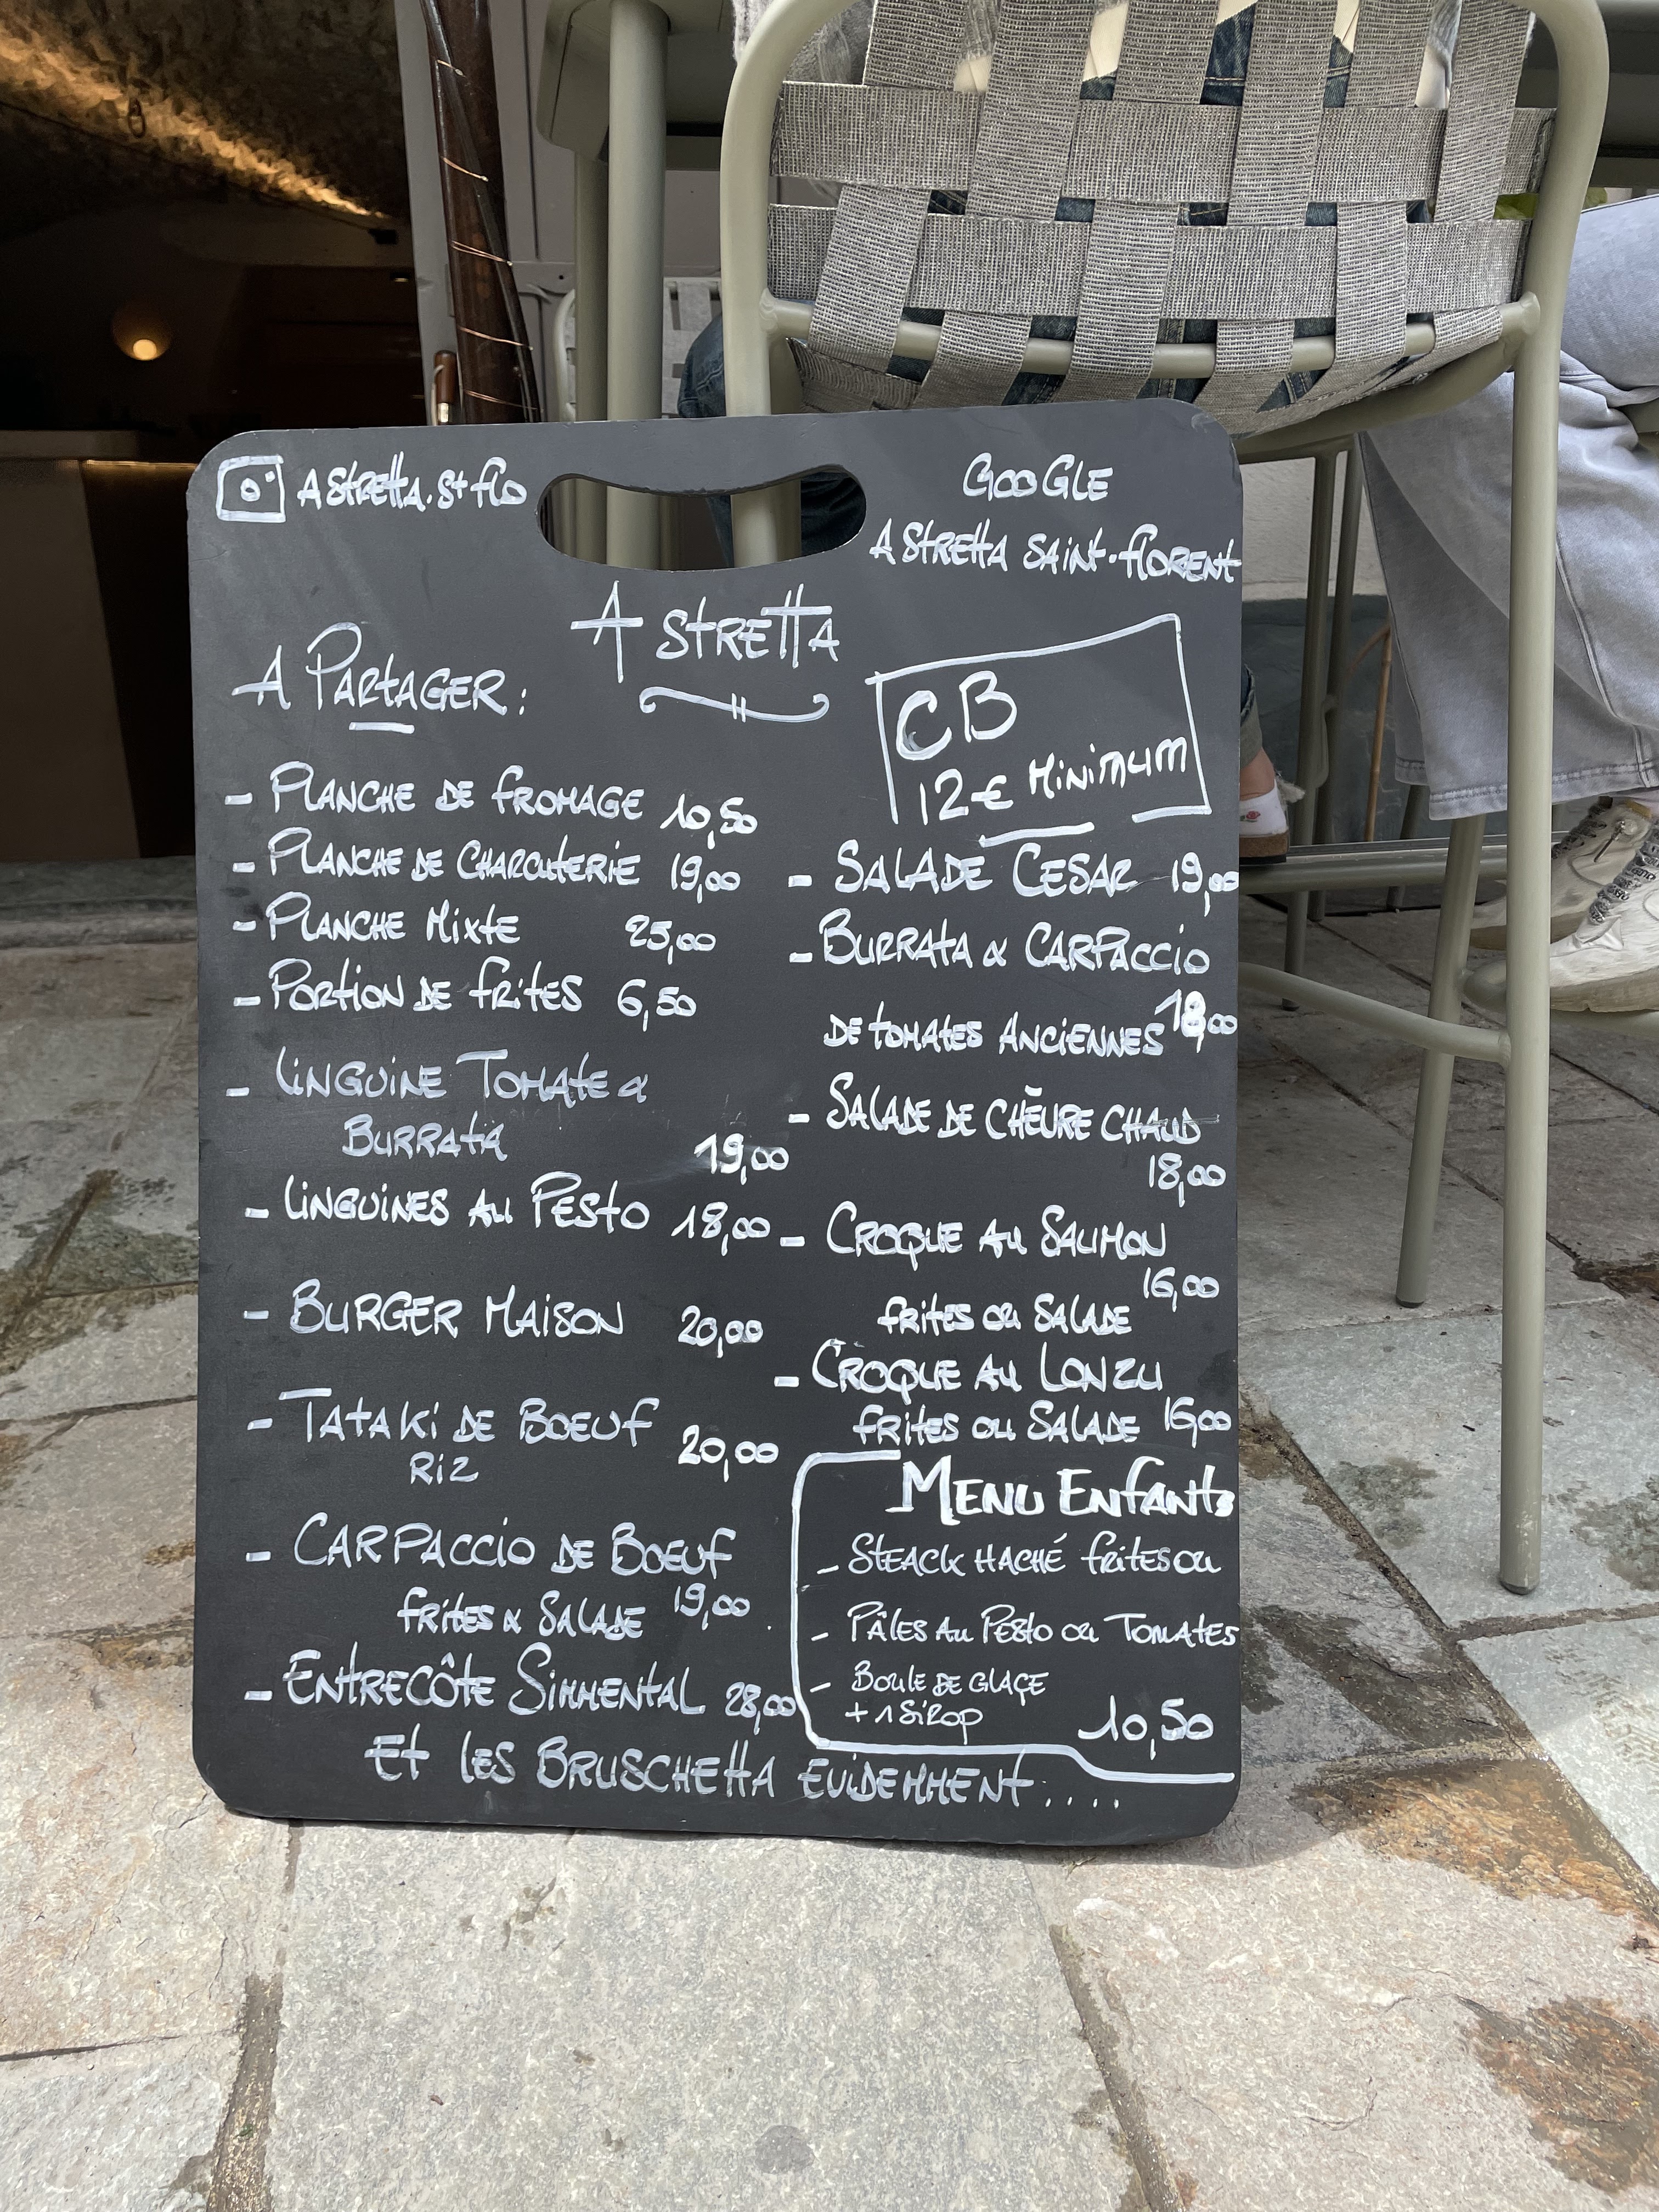 A STRETTA.ST FLO
GOOGLE
A STRETTA SAINT-FLORENT
A STRETTA
A PARTAGER :
- PLANCHE DE FROMAGE 10,50
- PLANCHE DE CHARCUTERIE 19,00
- PLANCHE MIXTE 25,00
- PORTION DE FRITES 6,50
- LINGUINE TOMATE &
BURRATA 19,00
- LINGUINES AU PESTO 18,00
- BURGER MAISON 20,00
- TATAKI DE BOEUF 20,00
RIZ
- CARPACCIO DE BOEUF
FRITES & SALADE 19,00
- ENTRECÔTE SIMMENTAL 28,00
CB
12€ MINIMUM
- SALADE CESAR 19,00
- BURRATA & CARPACCIO
DE TOMATES ANCIENNES 18,00
- SALADE DE CHÈVRE CHAUD
18,00
- CROQUE AU SAUMON
16,00
FRITES OU SALADE
- CROQUE AU LONZU
FRITES OU SALADE 16,00
MENU ENFANTS
- STEACK HACHÉ FRITES OU
- PÂTES AU PESTO OU TOMATES
- BOULE DE GLAÇE
+ 1 SIROP 10,50
ET LES BRUSCHETTA EVIDEMMENT ....